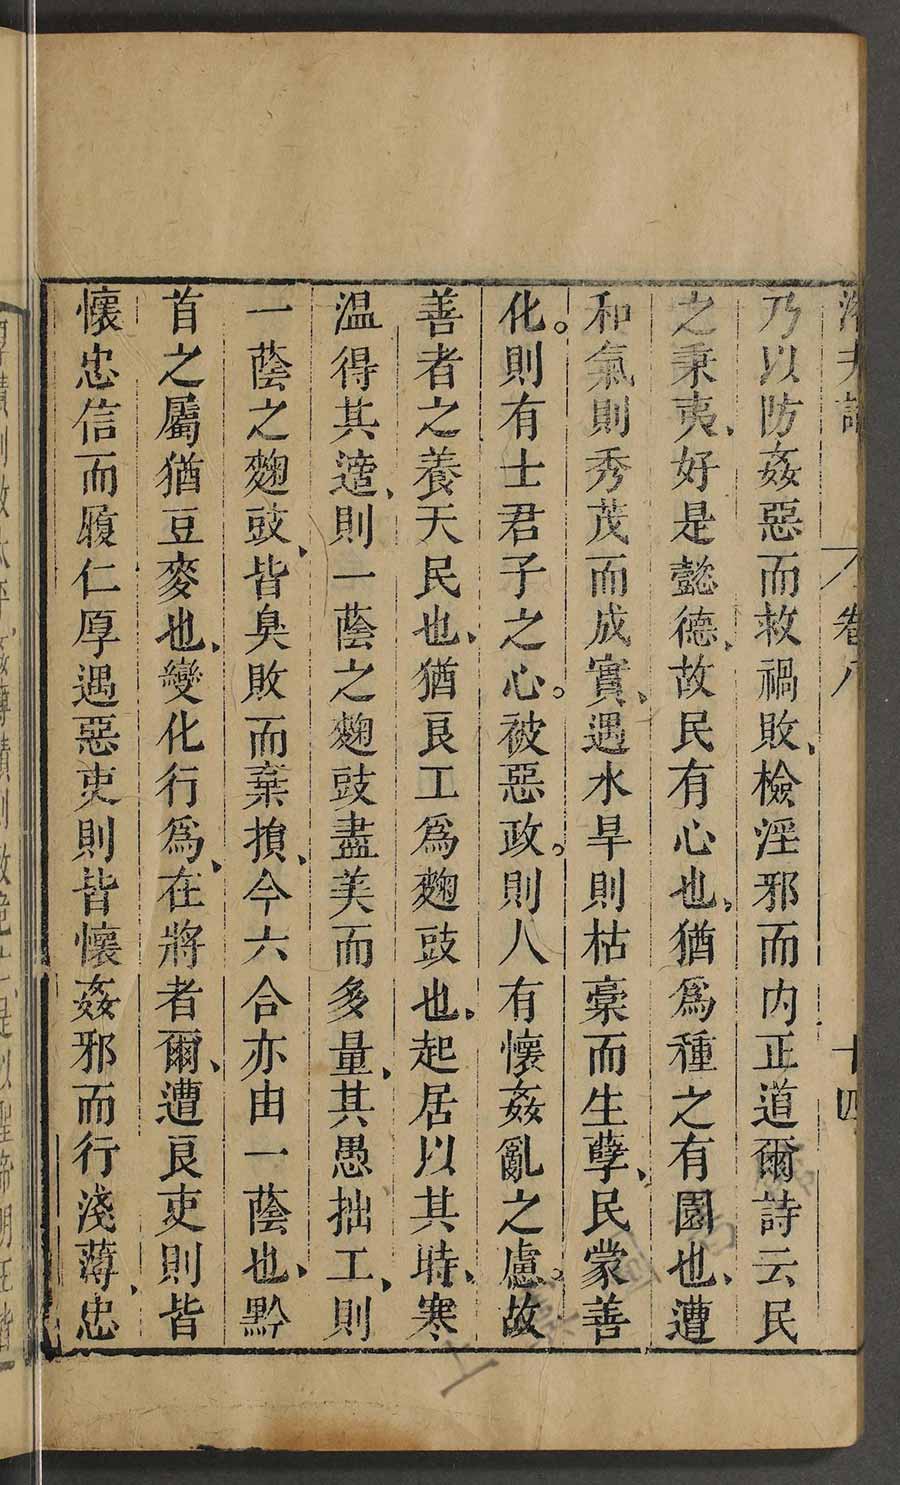 乃以防姦惡而救禍敗、檢淫邪而内正道爾詩云民
之秉夷、好是懿德、故民有心也、猶爲種之有園也、遭
和氣則秀茂而成實、遇水旱則枯槀而生孽、民蒙善
化。則有士君子之心。被惡政。則人有懷姦亂之慮。故
善者之養天民也、猶良工爲麴豉也、起居以其時、寒
温得其適、則一蔭之麴豉盡美而多量、其愚拙工、則
一蔭之麴豉、皆臭敗而棄損、今六合亦由一蔭也、黔
首之屬猶豆麥也、變化行爲、在將者爾、遭良吏則皆
懷忠信而履仁厚遇惡吏則皆懷姦邪而行淺薄、忠
卷八
十四